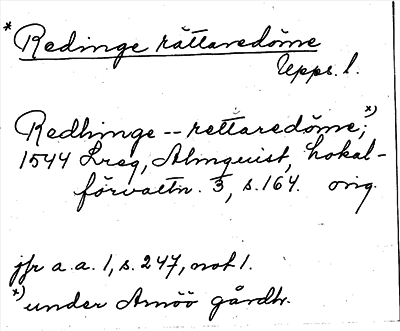 * Redinge rättaredöme
Upps. l.
Redhinge -- rettaredöme; x)
1544 Lreg, Almquist, Lokal-
förvaltn. 3, s. 164. orig.
jfr a.a. 1, s. 247, not 1.
x) under Arnöö gårdtr.